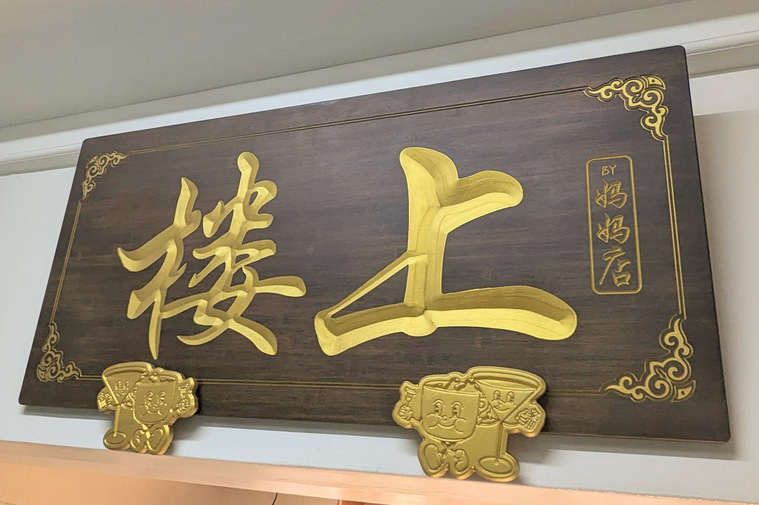 楼上
BY
妈妈店